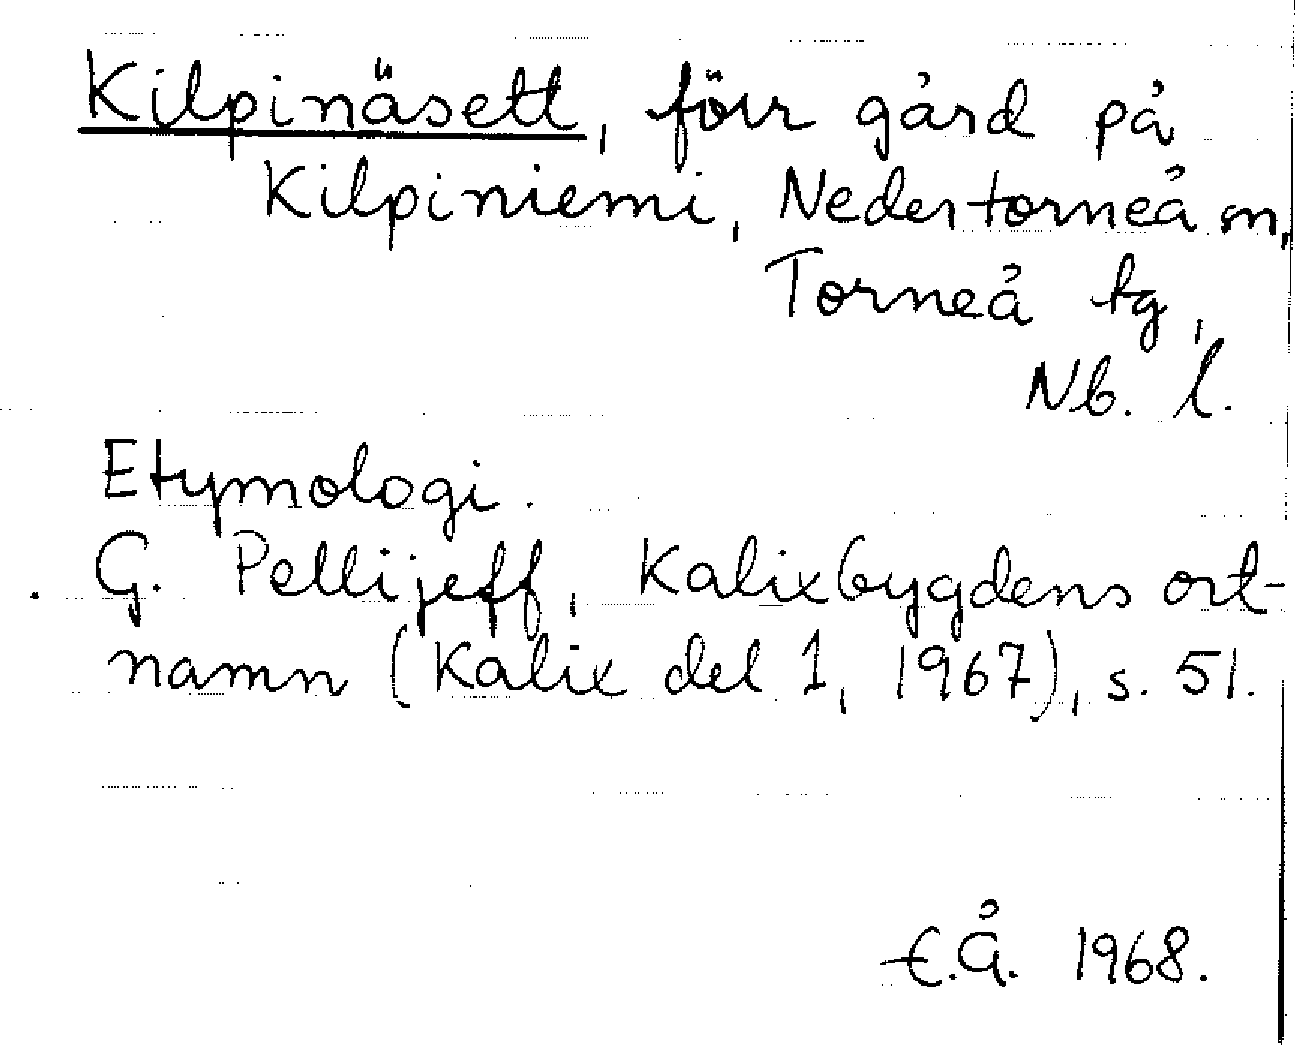 Kilpinäsett, förr gård på
Kilpiniemi, Nedertorneå sn,
Torneå tg,
Nb. l.
Etymologi.
G. Pellijeff, Kalixbygdens ort-
namn (Kalix del 1, 1967), s. 51.
E.Å. 1968.